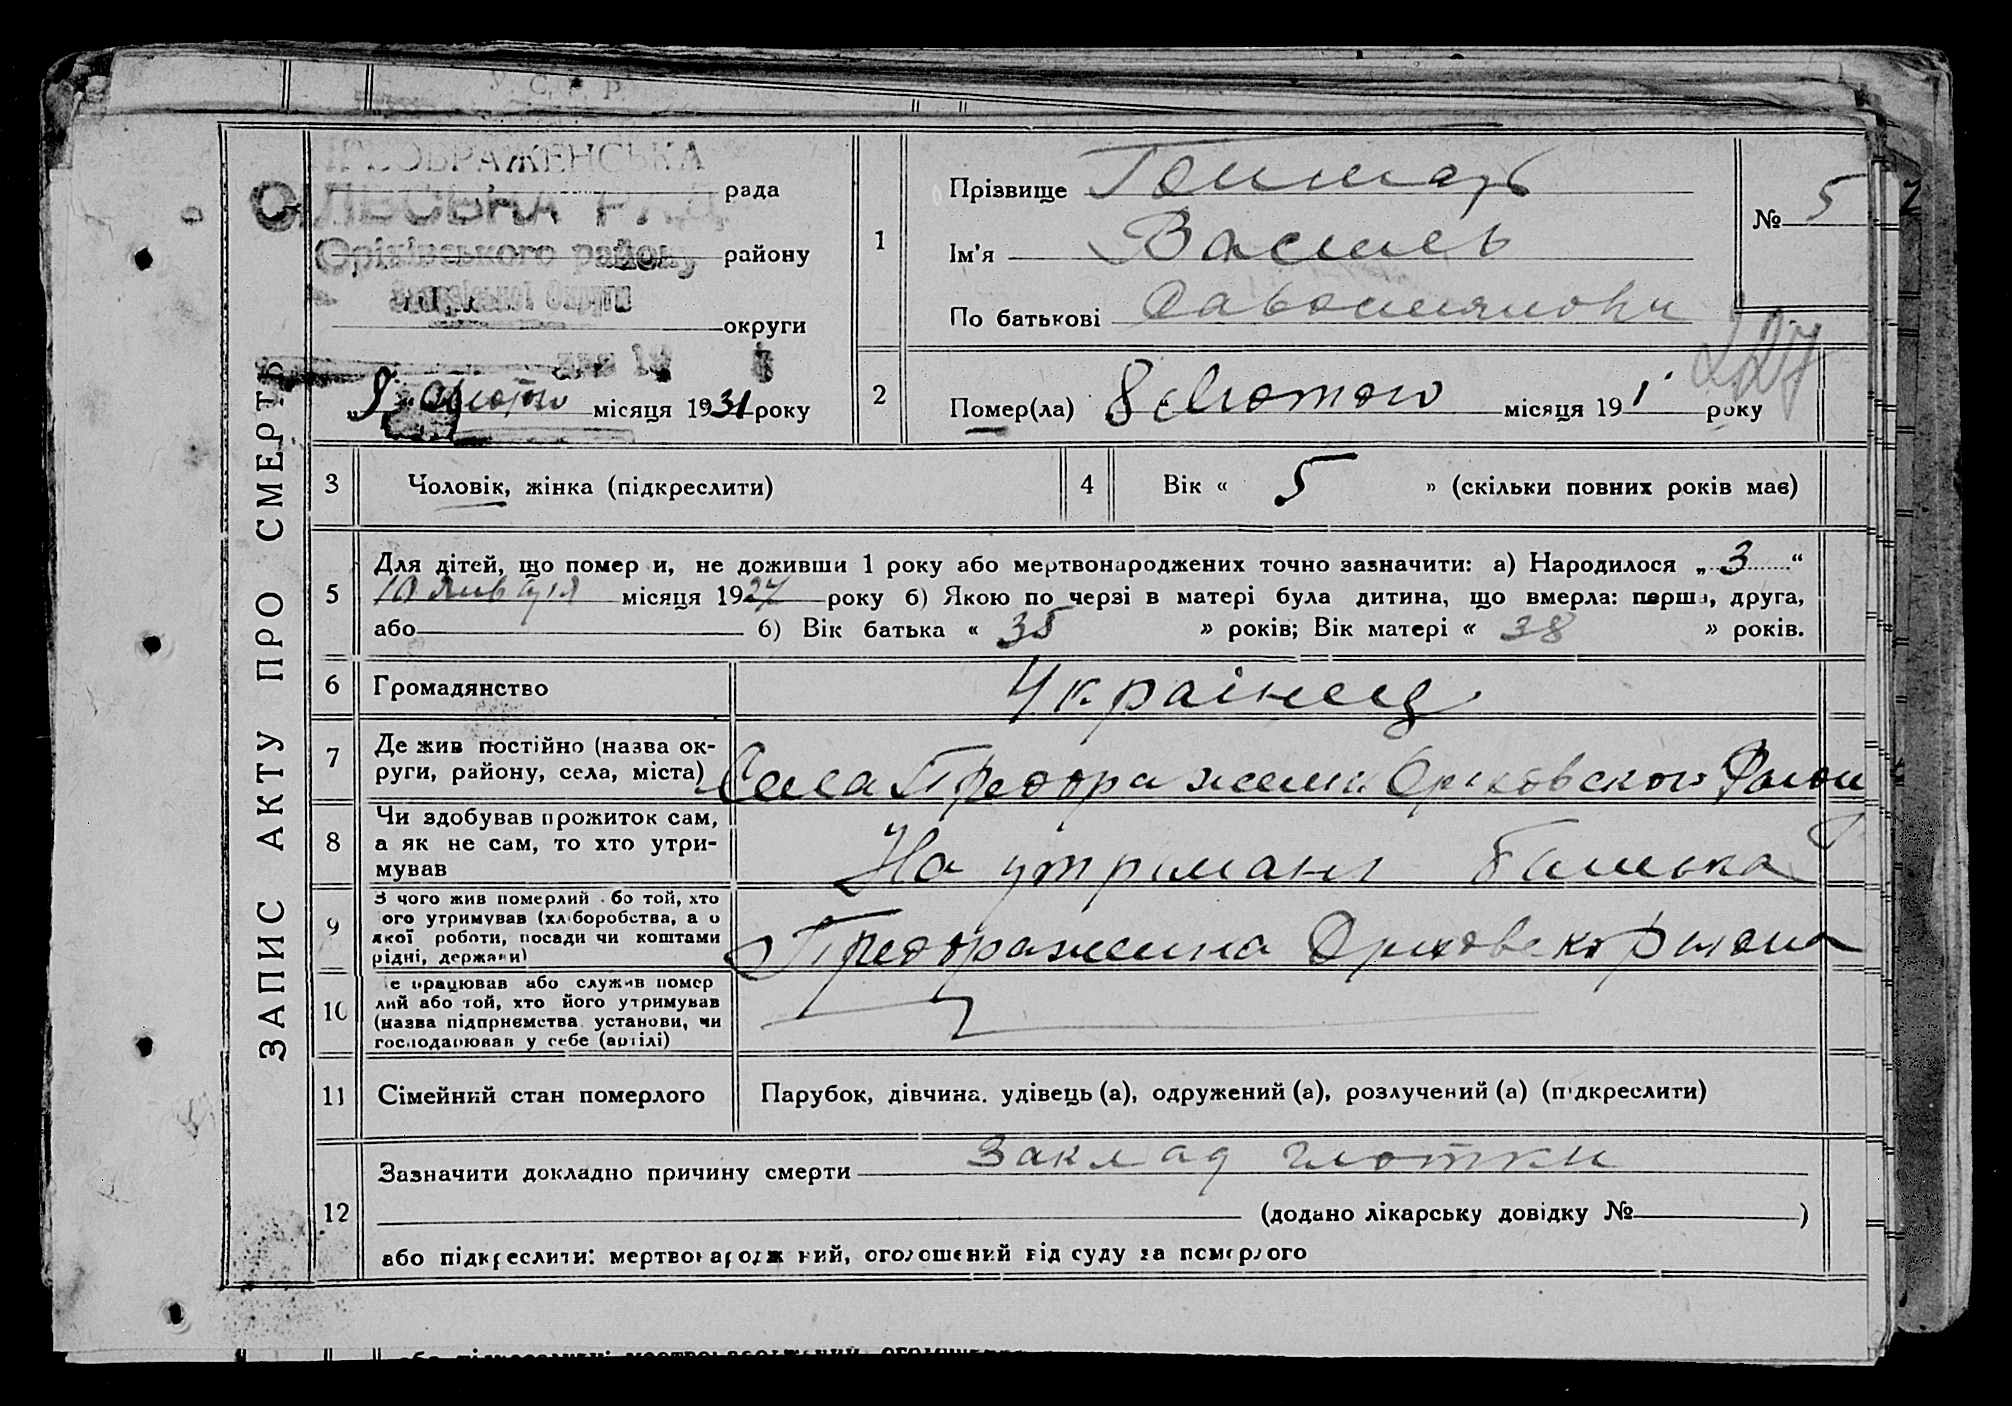 У. С. Р. Р.
ЗАПИС АКТУ ПРО СМЕРТЬ
ПРЕОБРАЖЕНСЬКА
рада
СІЛЬСЬКА РАДА
Оріхівського району району
Запорізької Округи
округи
9 Лютого місяця 1931 року
1
Прізвище
Ім'я Василь
По батькові
№ 5
227
2
Помер(ла) 8 Лютого місяця 191 року
3
Чоловік, жінка (підкреслити)
4
Вік « 5 » (скільки повних років має)
5
Для дітей, що помер и, не доживши 1 року або мертвонароджених точно зазначити: а) Народилося „ 3 “
10 января місяця 1927 року б) Якою по черзі в матері була дитина, що вмерла: перша, друга,
або б) Вік батька « 35 » років; Вік матері « 38 » років.
6
Громадянство
Українец
7
Де жив постійно (назва ок-
руги, району, села, міста)
Села Преображенка Оріховского Район
8
Чи здобував прожиток сам,
а як не сам, то хто утри-
мував
На утримані батька
9
З чого жив померлий або той, хто
ого утримував (хліборобства, а о
якої роботи, посади чи коштами
рідні, держави)
Преображенка Оріховск району
10
е працював або служив помер
лий або той, хто його утримував
(назва підприємства установи, чи
господарював у себе (артілі)
11
Сімейний стан померлого
Парубок, дівчина, удівець (а), одружений (а), розлучений (а) (підкреслити)
12
Зазначити докладно причину смерти заклад глотки
(додано лікарську довідку № )
або підкреслити: мертвонароджений, оголошений від суду за померлого